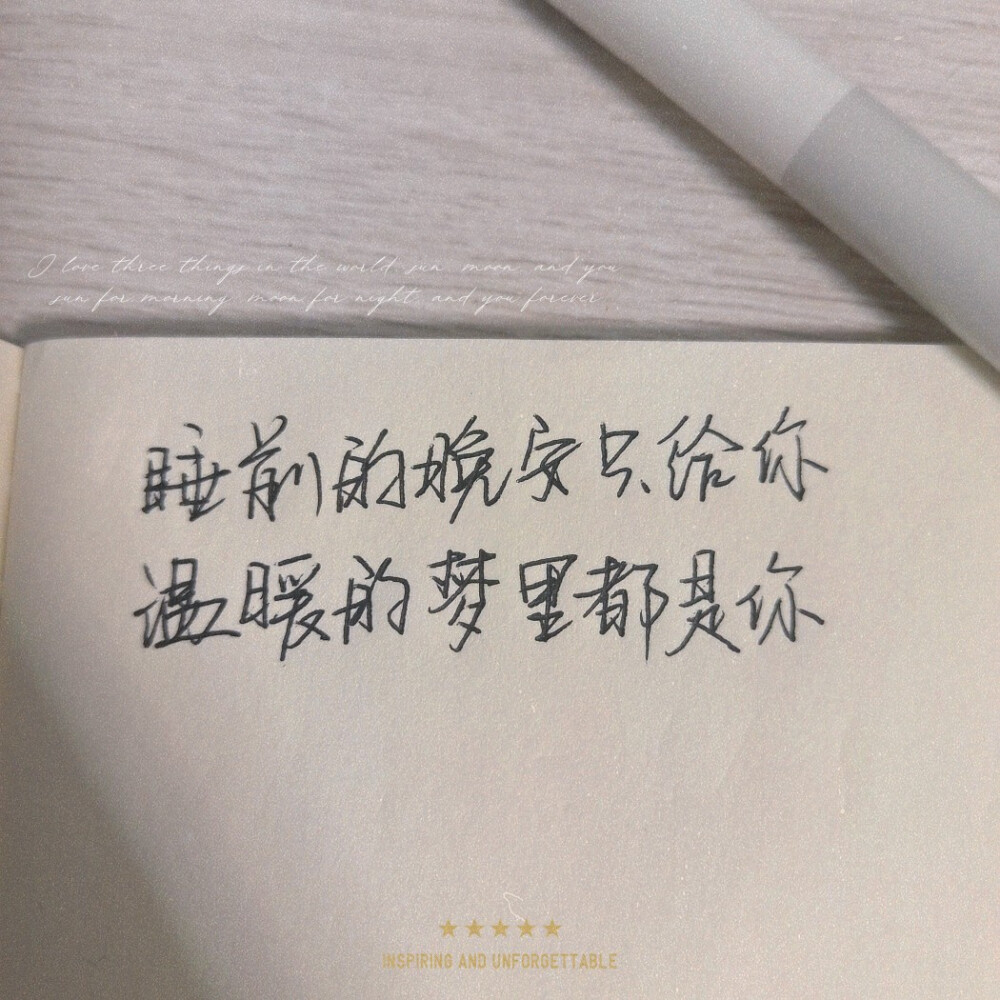 I love three things in the world sun moon and you
sun for morning moon for night and you forever
睡前的晚安只给你
温暖的梦里都是你
INSPIRING AND UNFORGETTABLE